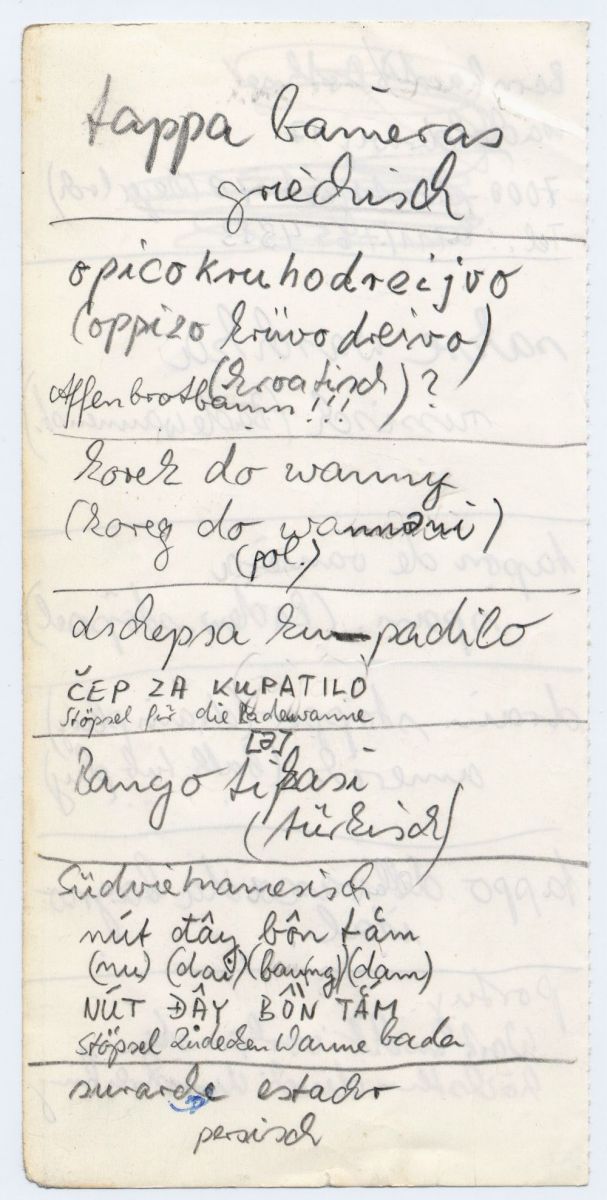 tappa bañeras
griechisch
opicokruhodreijvo
(oppizo krüvodreivo)
(kroatisch) ?
Affenbrotbaum !!!
korek do wanny
(koreg do wannəni)
(pol.)
dschepsa ku-padilo
ČEP ZA KUPATILO
Stöpsel für die Badewanne
[ə]
Bango tikasi
(türkisch)
Südvietnamesisch
nút đây bôn tắm
(nu) (dai) (baung) (dam)
NÚT ĐÂY BỒN TẮM
Stöpsel Zudecken Wanne bada
surarde estachr
persisch